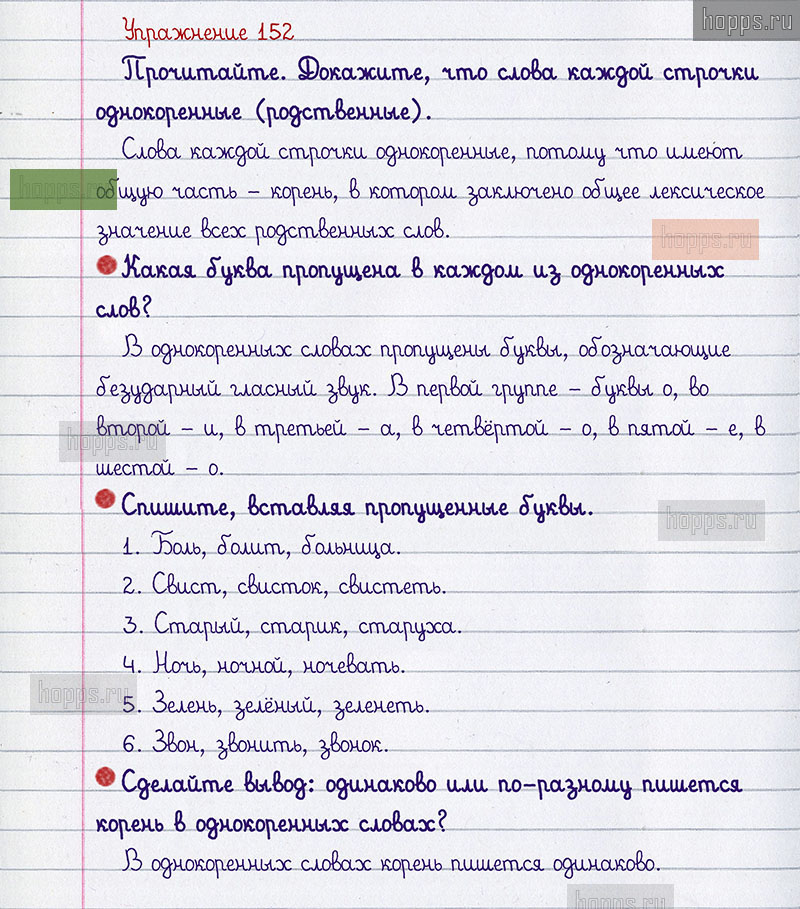 hopps.ru
Упражнение 152
Прочитайте. Докажите, что слова каждой строчки
однокоренные (родственные).
Слова каждой строчки однокоренные, потому что имеют
hopps.ru
общую часть – корень, в котором заключено общее лексическое
значение всех родственных слов.
hopps.ru
Какая буква пропущена в каждом из однокоренных
слов?
В однокоренных словах пропущены буквы, обозначающие
безударный гласный звук. В первой группе – буквы о, во
второй – и, в третьей – а, в четвёртой – о, в пятой – е, в
hopps.ru
шестой – о.
Спишите, вставляя пропущенные буквы.
hopps.ru
1. Боль, болит, больница.
2. Свист, свисток, свистеть.
3. Старый, старик, старуха.
4. Ночь, ночной, ночевать.
hopps.ru
5. Зелень, зелёный, зеленеть.
6. Звон, звонить, звонок.
Сделайте вывод: одинаково или по-разному пишется
корень в однокоренных словах?
В однокоренных словах корень пишется одинаково.
hopps.ru